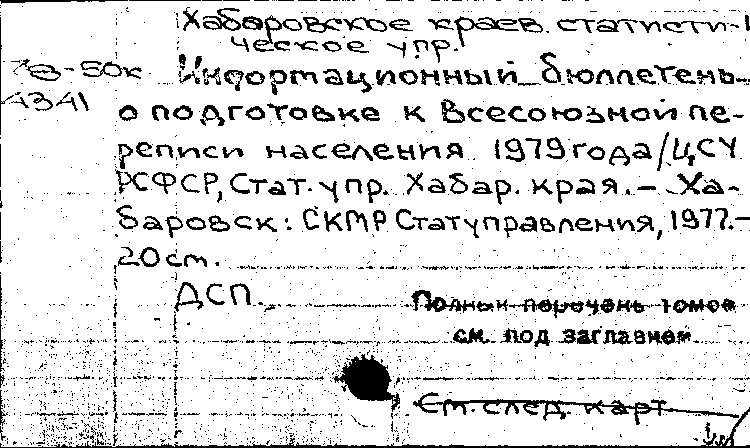 Хабаровское краев. статисти-
ческое упр.
78-50к
4341
Информационный бюллетень
о подготовке к Всесоюзной пе-
реписи населения 1979 года/ЦСУ
РСФСР, Стат. упр. Хабар. края. – Ха-
баровск: СКМР Статуправления, 1977.–
20 см.
ДСП.
Полный перечень томов
см. под заглавием
См. след. карт